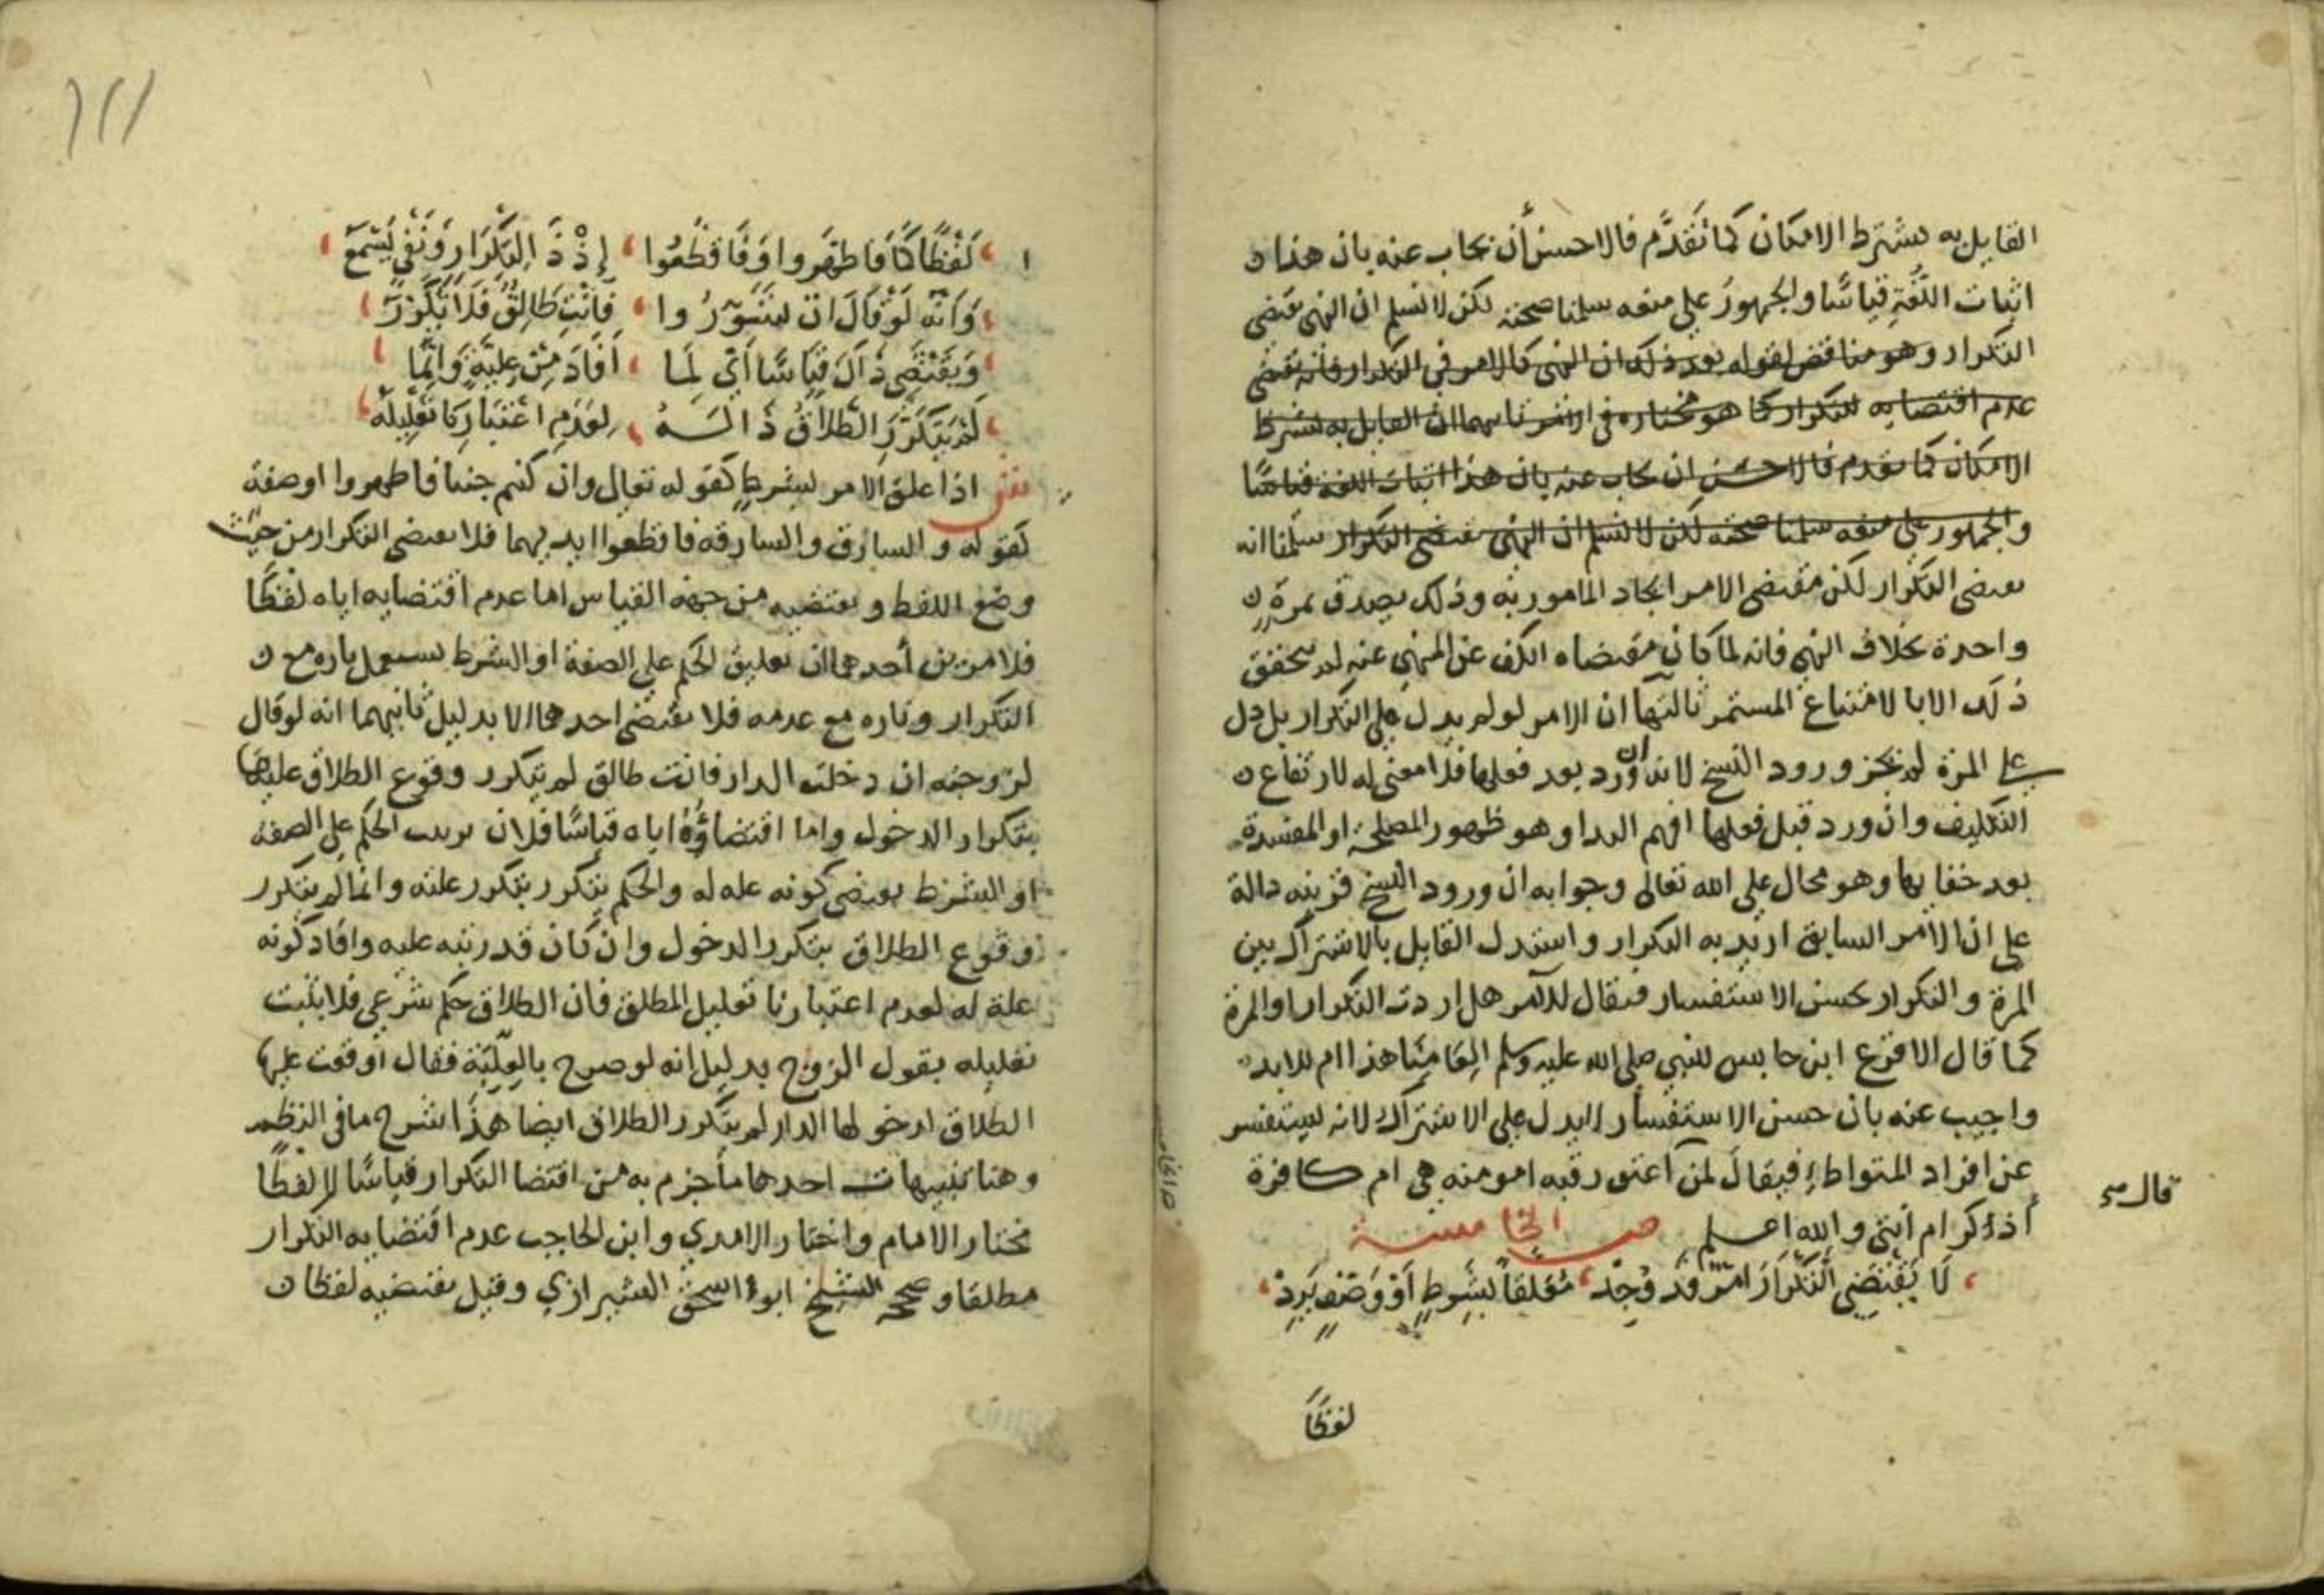 القايل به يشترط الامكان كما تقدم فالاحسن أن يجاب عنه بان هذا
اثبات اللغة قياسًا والجمهور على منعه سلمنا صحته لكن لا نسلم ان النهي يقتضي
التكرار وهو مناقض لقوله بعد ذلك ان النهي كالامر في التكرار فانه يقتضي
عدم اقتضايه للتكرار كما هو مختاره في الامر ثانيهما ان القايل به يشترط
الامكان كما تقدم فالاحسن ان يجاب عنه بان هذا اثبات اللغة قياسًا
والجمهور على منعه سلمنا صحته لكن لا نسلم ان النهي يقتضي التكرار سلمنا انه
يقتضي التكرار لكن مقتضى الامر ايجاد المامور به وذلك يصدق بمرة
واحدة بخلاف النهي فانه لما كان مقتضاه الكف عن المنهي عنه لم يتحقق
ذلك الا بالامتناع المستمر ثالثها ان الامر لو لم يدل على التكرار بل دل
على المرة لم يجز ورود النسخ لانه ان ورد بعد فعلها فلا معنى له لارتفاع
التكليف وان ورد قبل فعلها افهم البدا وهو ظهور المصلحة او المفسدة
بعد خفايها وهو محال على الله تعالى وجوابه ان ورود النسخ قرينه دالة
على ان الامر السابق اريد به التكرار واستدل القايل بالاشتراك بين
المرة والتكرار بحسن الاستفسار فيقال للآمر هل اردت التكرار او المرة
كما قال الاقرع ابن حابس للنبي صلى الله عليه وسلم العامنا هذا ام للابد
واجيب عنه بان حسن الاستفسار لا يدل على الاشتراك لانه ليستفسر
عن افراد المتواطئ فيقال لمن اعتق رقبه امومنه هي ام كافرة
أذكر ام أنثى والله اعلم ص الخامسة
قال
لَا يَقْتَضِي التَّكْرَارَ امر قد وُجِدْ مُعَلقاً بِشَرطٍ أَوْ وَصْفٍ يَرِدْ
لفظًا
١١١
لَفْظًا كَمَا فَاطَهَّروا وَفَاقطَعُوا إِذْ ذَا لِتَكْرَارٍ وَنَفْيٍ يُسْمَعُ
وَأَنَّه لَوْ قَالَ ان فَأَنْتِ طَالِقٌ فَلَا تَكَرُّرَ
وَيَقْتَضِي ذَاكَ قِيَاسًا أَيْ لِمَا أَفَادَ مِنْ عِلِّيَّةٍ وَإِنَّمَا
لَمْ يَتَكَرَّرِ الطَّلَاقُ لِعَدَمِ اعْتِبَارِنَا تَعْلِيلَهُ
ش اذا علق الامر بشرط كقوله تعالى وان كنتم جنبا فاطهروا او صفة
كقوله والسارق والسارقه فاقطعوا ايديهما فلا يقتضي التكرار من حيث
وضع اللفظ ويقتضيه من جهة القياس اما عدم اقتضايه اياه لفظًا
فلامرين أحدهما ان تعليق الحكم على الصفة او الشرط يستعمل تاره مع
التكرار وتاره مع عدمه فلا يقتضي احدهما الا بدليل ثانيهما انه لو قال
لزوجته ان دخلت الدار فانت طالق لم يتكرر وقوع الطلاق عليها
بتكرار الدخول واما اقتضاؤه اياه قياسًا فلان ترتب الحكم على الصفة
او الشرط يقتضي كونه عله له والحكم يتكرر بتكرر علته وانما لم يتكرر
وقوع الطلاق بتكرر الدخول وان كان قد رتبه عليه وافاد كونه
علة له لعدم اعتبارنا تعليل المطلق فان الطلاق حكم شرعي فلا يثبت
تعليله بقول الزوج بدليل انه لو صرح بالعلّيّة فقال أوقعت عليها
الطلاق لدخولها الدار لم يتكرر الطلاق ايضا هذا شرح ما في النظم
وهنا تنبيهات احدها ما جزم به من اقتضا التكرار قياسًا لا لفظًا
مختار الامام واختار الامدي وابن الحاجب عدم اقتضايه التكرار
مطلقا وصححه الشيخ ابو اسحق الشيرازي وقيل يقتضيه لفظا